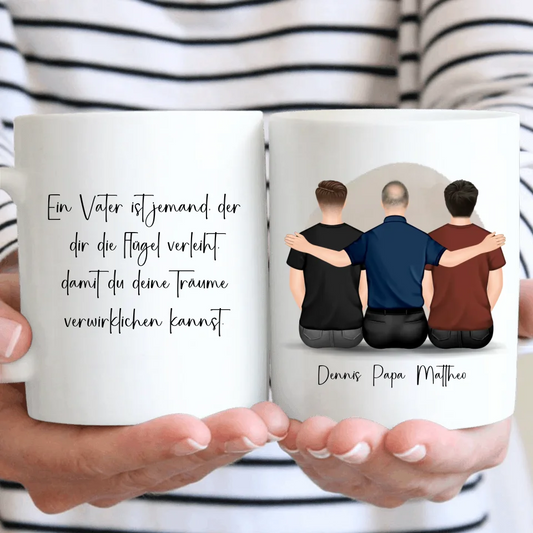 Ein Vater ist jemand, der
dir die Flügel verleiht,
damit du deine Träume
verwirklichen kannst.
Dennis Papa Mattheo